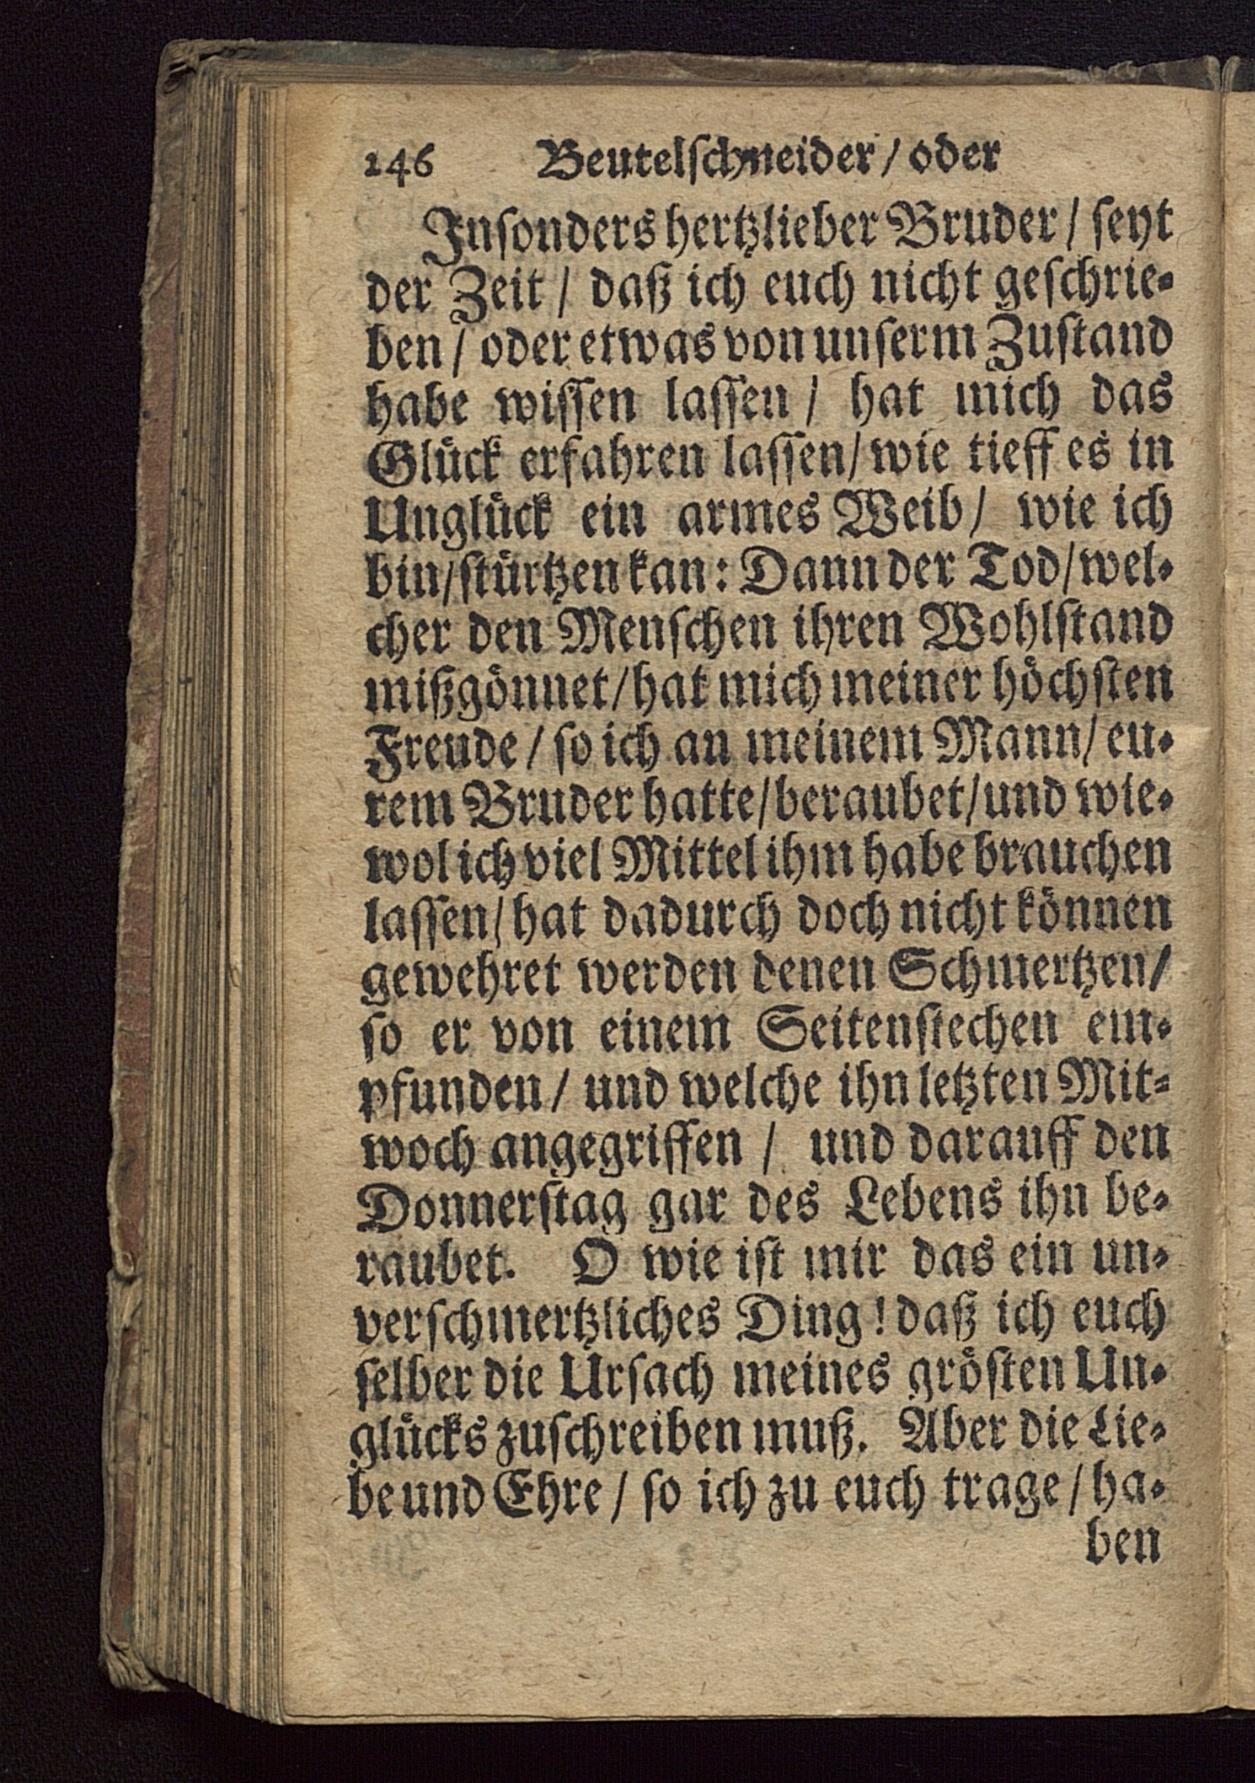 146 Beutelſchneider / oder
Inſonders hertzlieber Bruder / ſeyt
der Zeit / daß ich euch nicht geſchrie-
ben / oder etwas von unſerm Zuſtand
habe wiſſen laſſen / hat mich das
Glück erfahren laſſen / wie tieff es in
Unglück ein armes Weib / wie ich
bin / ſtürtzen kan: Dann der Tod / wel-
cher den Menſchen ihren Wohlſtand
mißgönnet / hat mich meiner höchſten
Freude / ſo ich an meinem Mann / eu-
rem Bruder hatte / beraubet / und wie-
wol ich viel Mittel ihm habe brauchen
laſſen / hat dadurch doch nicht können
gewehret werden denen Schmertzen /
ſo er von einem Seitenſtechen em-
pfunden / und welche ihn letzten Mit-
woch angegriffen / und darauff den
Donnerſtag gar des Lebens ihn be-
raubet. O wie iſt mir das ein un-
verſchmertzliches Ding! daß ich euch
ſelber die Urſach meines gröſten Un-
glücks zuſchreiben muß. Aber die Lie-
be und Ehre / ſo ich zu euch trage / ha-
ben